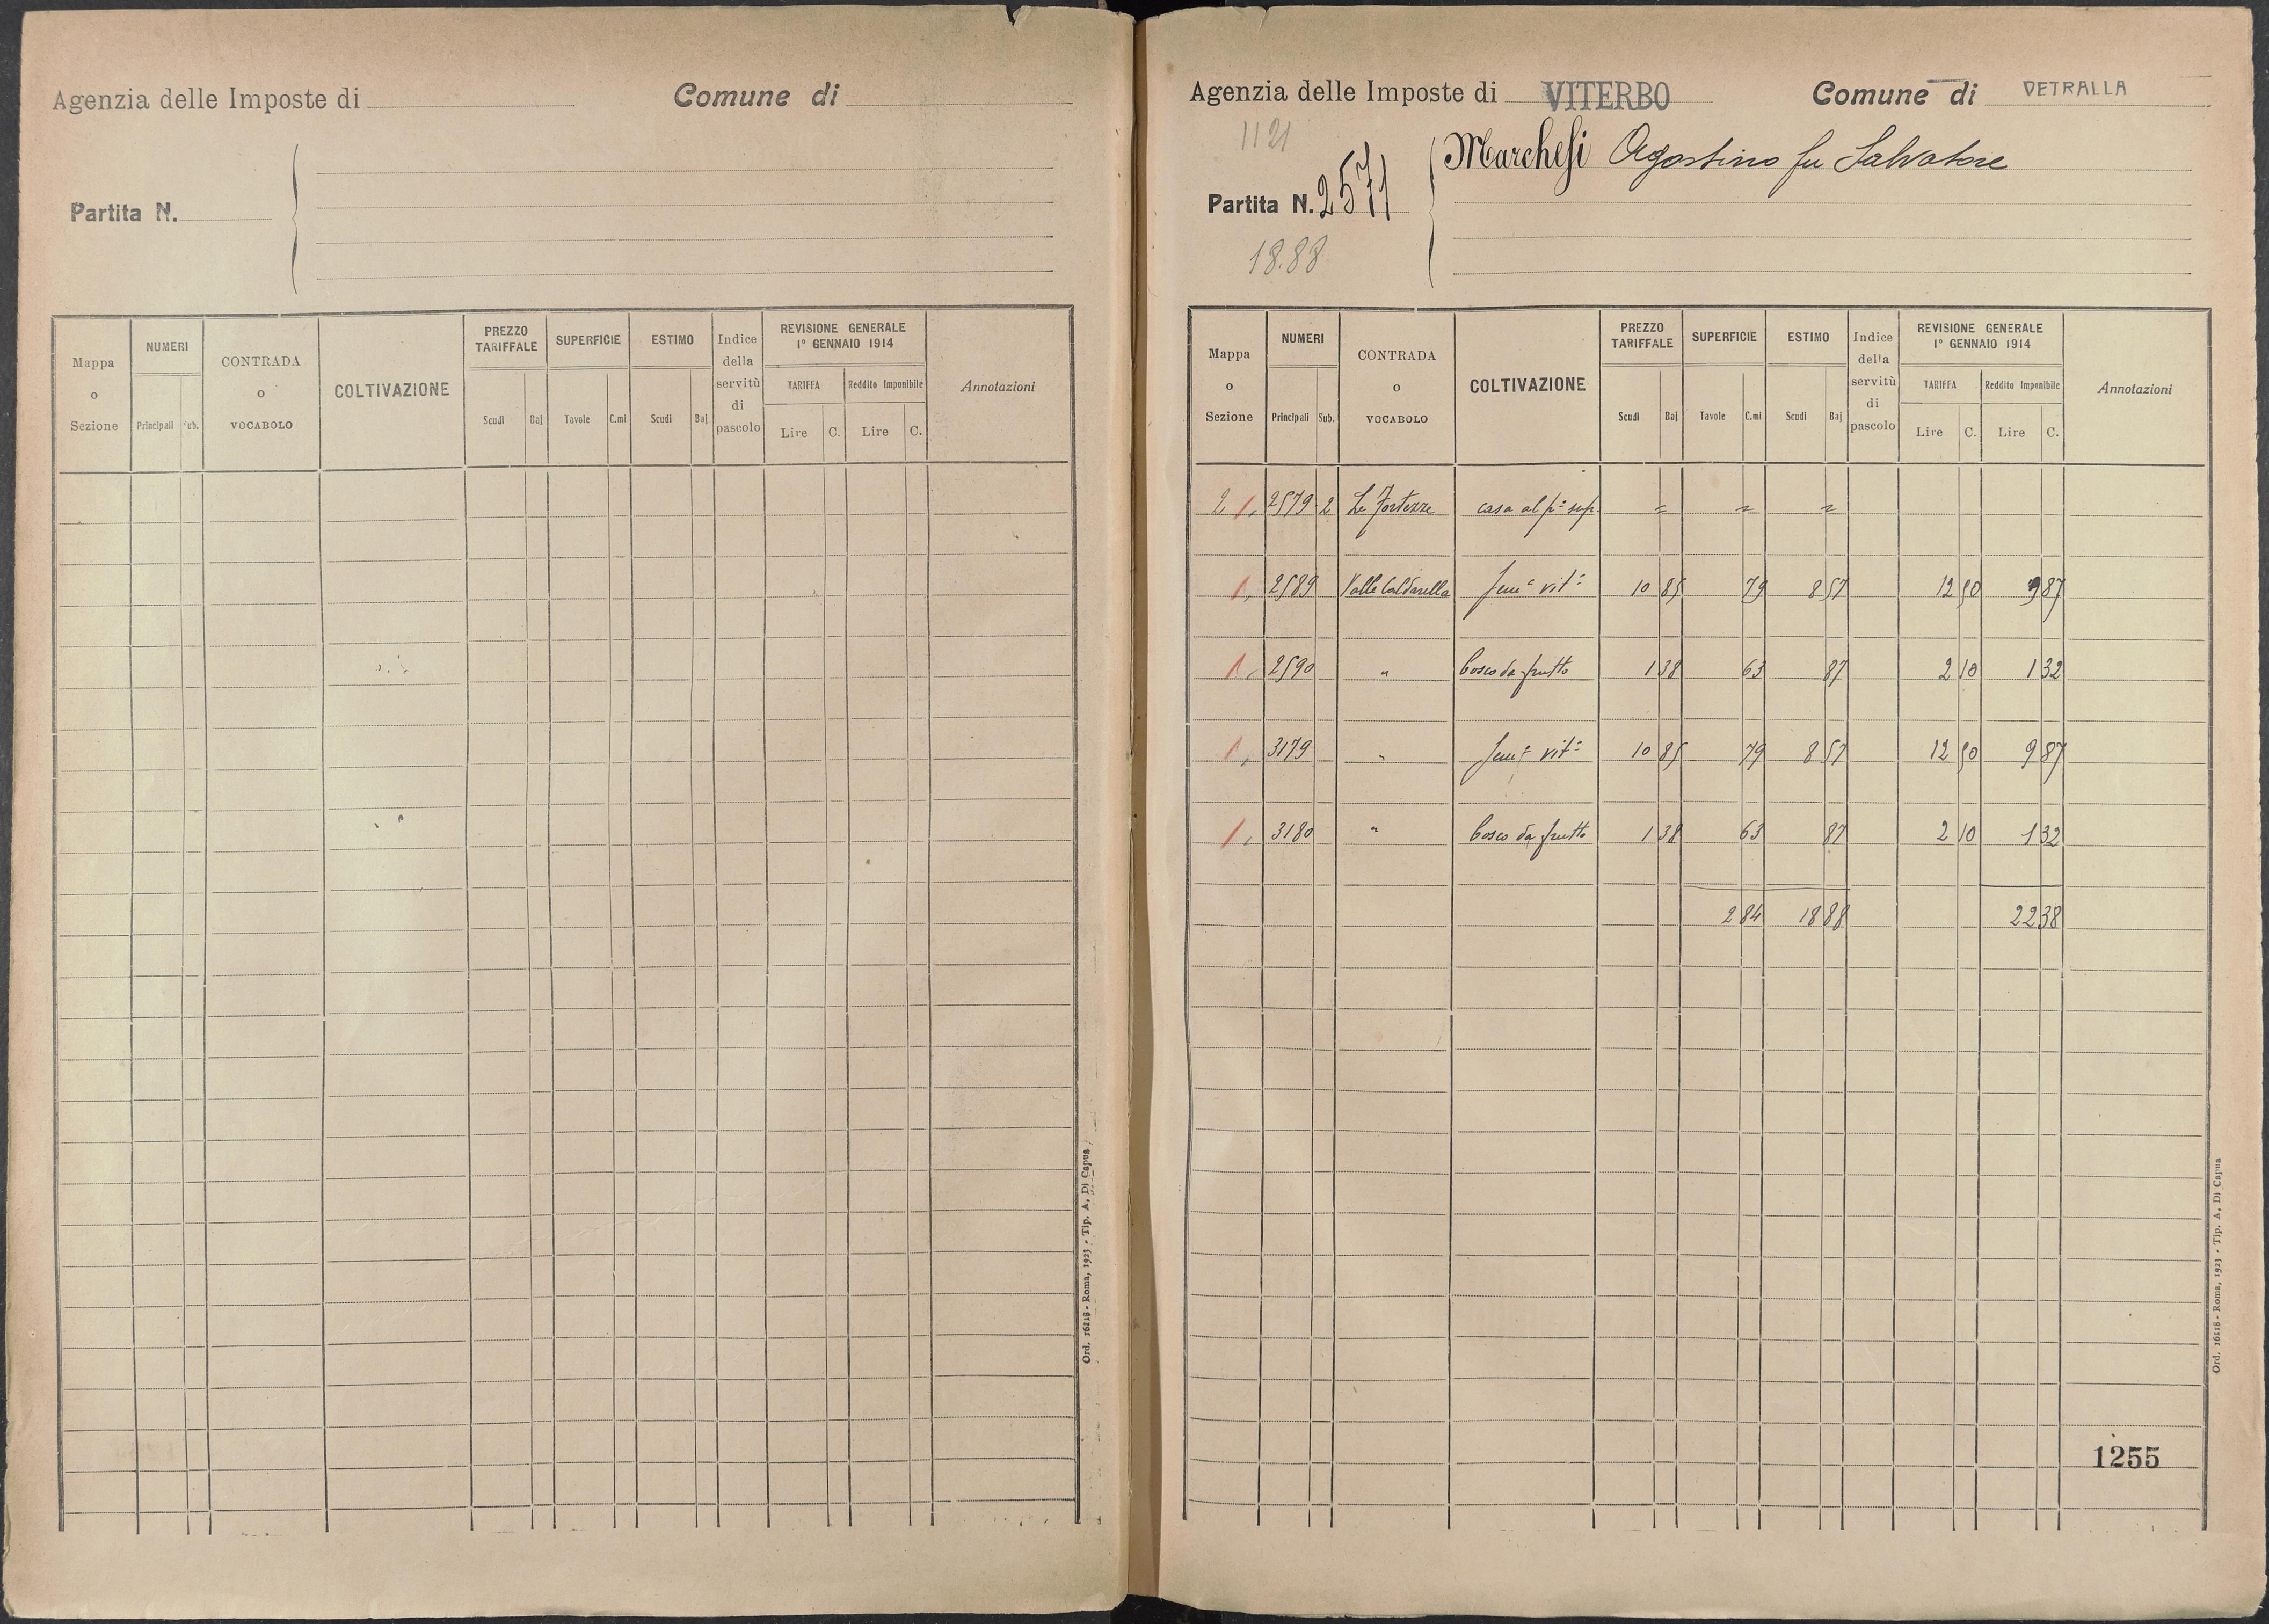 Agenzia delle Imposte di Comune di
Partita N.
Mappa o Sezione NUMERI Principali Sub. CONTRADA o VOCABOLO COLTIVAZIONE PREZZO TARIFFALE Scudi Baj SUPERFICIE Tavole C.mi ESTIMO Scudi Baj Indice della servitù di pascolo REVISIONE GENERALE 1° GENNAIO 1914 TARIFFA Lire C. Reddito Imponibile Lire C. Annotazioni
Ord. 16218 - Roma, 1923 - Tip. A. Di Capua
Agenzia delle Imposte di VITERBO Comune di VETRALLA
1121
Marchesi Agostino fu Salvatore
Partita N. 2571
18.88
Mappa o Sezione NUMERI Principali Sub. CONTRADA o VOCABOLO COLTIVAZIONE PREZZO TARIFFALE Scudi Baj SUPERFICIE Tavole C.mi ESTIMO Scudi Baj Indice della servitù di pascolo REVISIONE GENERALE 1° GENNAIO 1914 TARIFFA Lire C. Reddito Imponibile Lire C. Annotazioni
2 1, 2579 2 Le Fortezze casa al p° sup. = = =
1, 2589 Valle Caldarella sem° vit° 10 85 79 8 57 12 50 9 87
1, 2590 " bosco da frutto 1 38 63 87 2 10 1 32
1, 3179 " sem° vit° 10 85 79 8 57 12 50 9 87
1, 3180 " bosco da frutto 1 38 63 87 2 10 1 32
2 84 18 88 22 38
1255
Ord. 16218 - Roma, 1923 - Tip. A. Di Capua